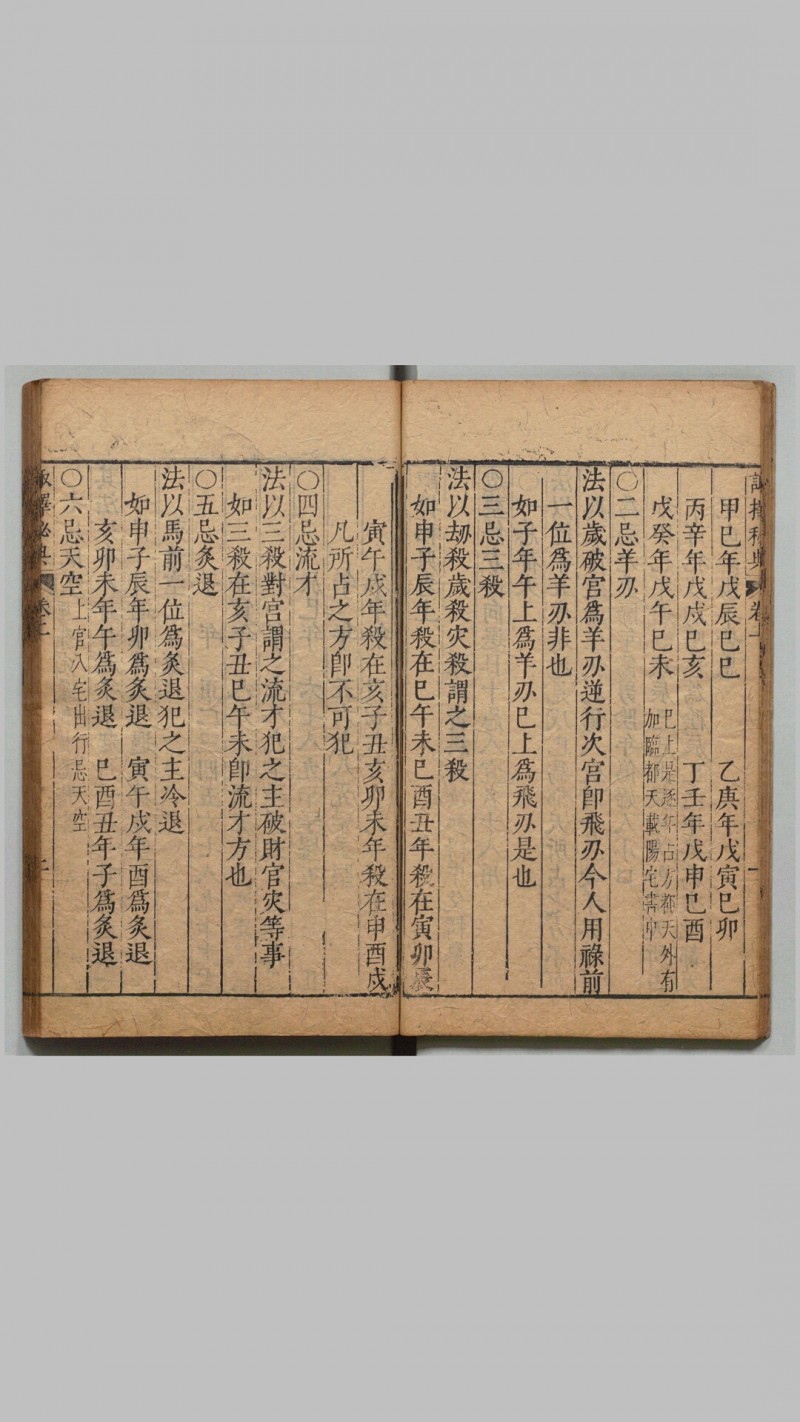 甲己年戊辰己巳　乙庚年戊寅己卯
丙辛年戊戌己亥　丁壬年戊申己酉
戊癸年戊午己未　巳上是逐年占方都天外有
加臨都天載陽宅書中
〇二忌羊刃
法以歲破宮爲羊刃逆行次宮卽飛刃今人用祿前
一位爲羊刃非也
如子年午上爲羊刃巳上爲飛刃是也
〇三忌三殺
法以劫殺歲殺灾殺謂之三殺
如申子辰年殺在巳午未巳酉丑年殺在寅卯辰
寅午戌年殺在亥子丑亥卯未年殺在申酉戌
凡所占之方卽不可犯
〇四忌流才
法以三殺對宮謂之流才犯之主破財官灾等事
如三殺在亥子丑巳午未卽流才方也
〇五忌灸退
法以馬前一位爲灸退犯之主冷退
如申子辰年卯爲灸退　寅午戌年酉爲灸退
亥卯未年午爲灸退　巳酉丑年子爲灸退
〇六忌天空　上官入宅出行忌天空